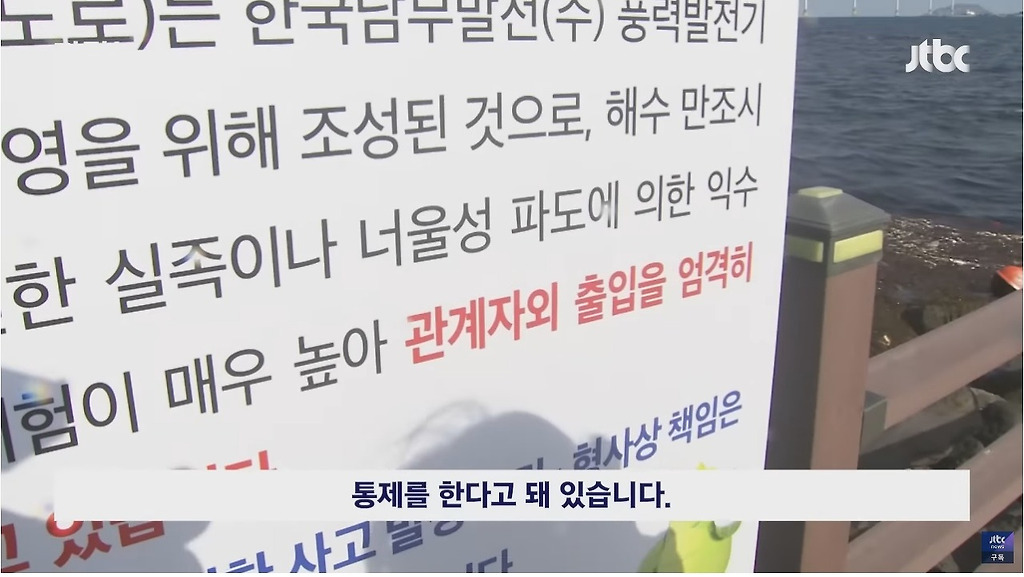 도로)는 한국남부발전(주) 풍력발전기
jtbc
영을 위해 조성된 것으로, 해수 만조시
한 실족이나 너울성 파도에 의한 익수
험이 매우 높아 관계자외 출입을 엄격히
형사상 책임은
고 있습
사고
통제를 한다고 돼 있습니다.
jtbc
news
구독